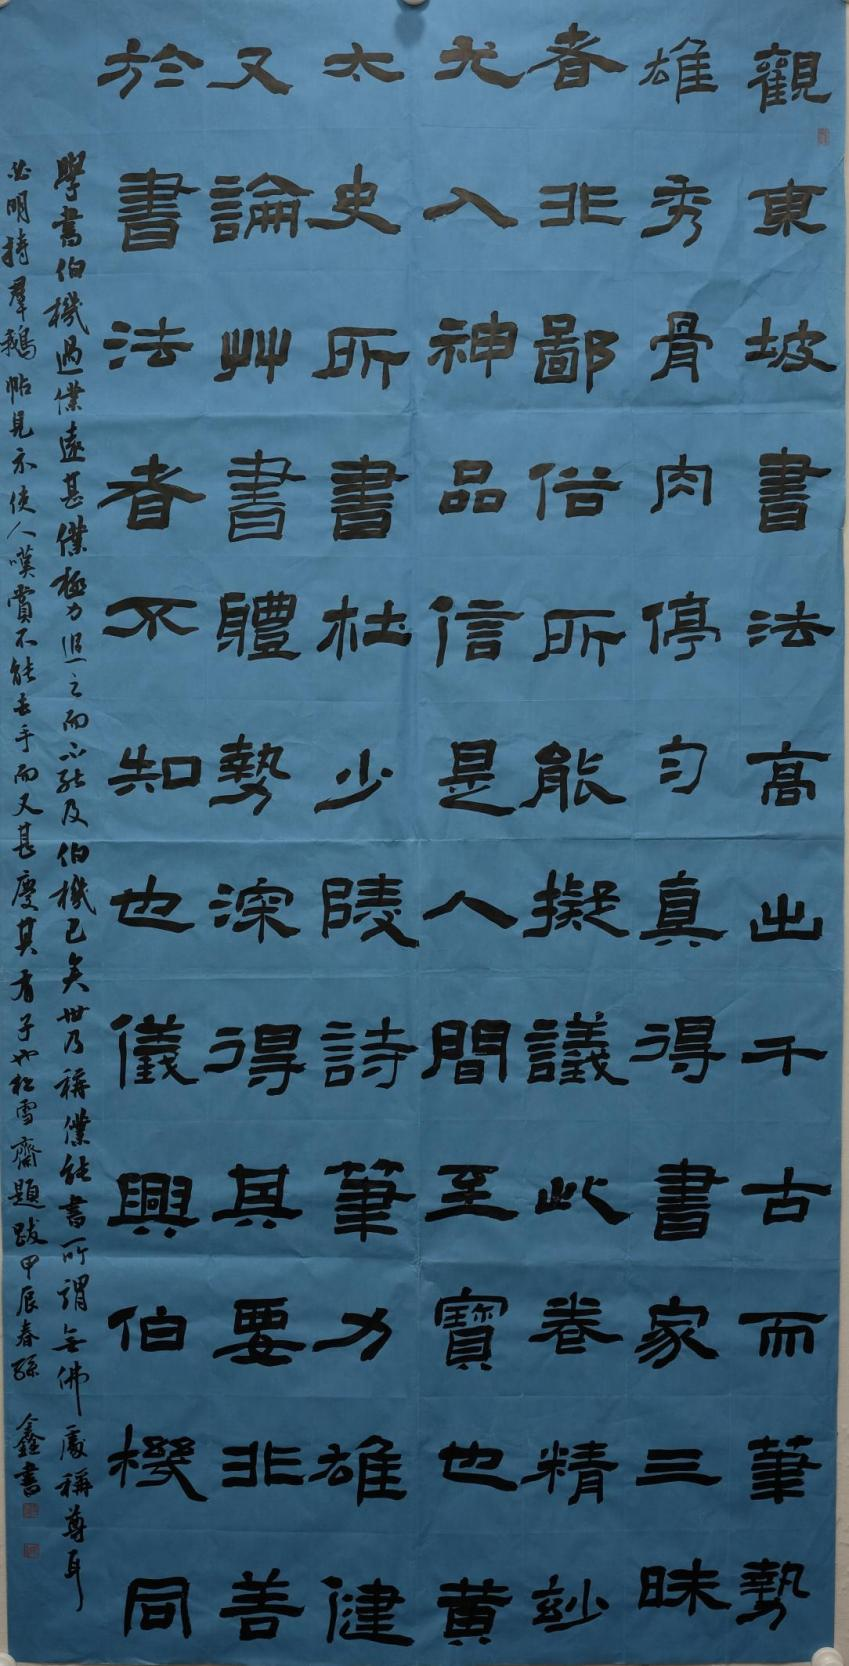 觀東坡書法高出千古而筆勢
雄秀骨肉停勻真得書家三昧
者非鄙俗所能擬議此卷精妙
尤入神品信是人間至寶也黄
太史所書杜少陵詩筆力雄健
又論艸書體勢深得其要非善
於書法者不知也儀興伯機同
學書伯機過僕遠甚僕極力追之而不能及伯機已矣世乃稱僕能書所謂無佛處稱尊耳
必明持羣鵝帖見示使人嘆賞不能去手而又甚慶其有子也松雪齋題跋甲辰春孫鑫書